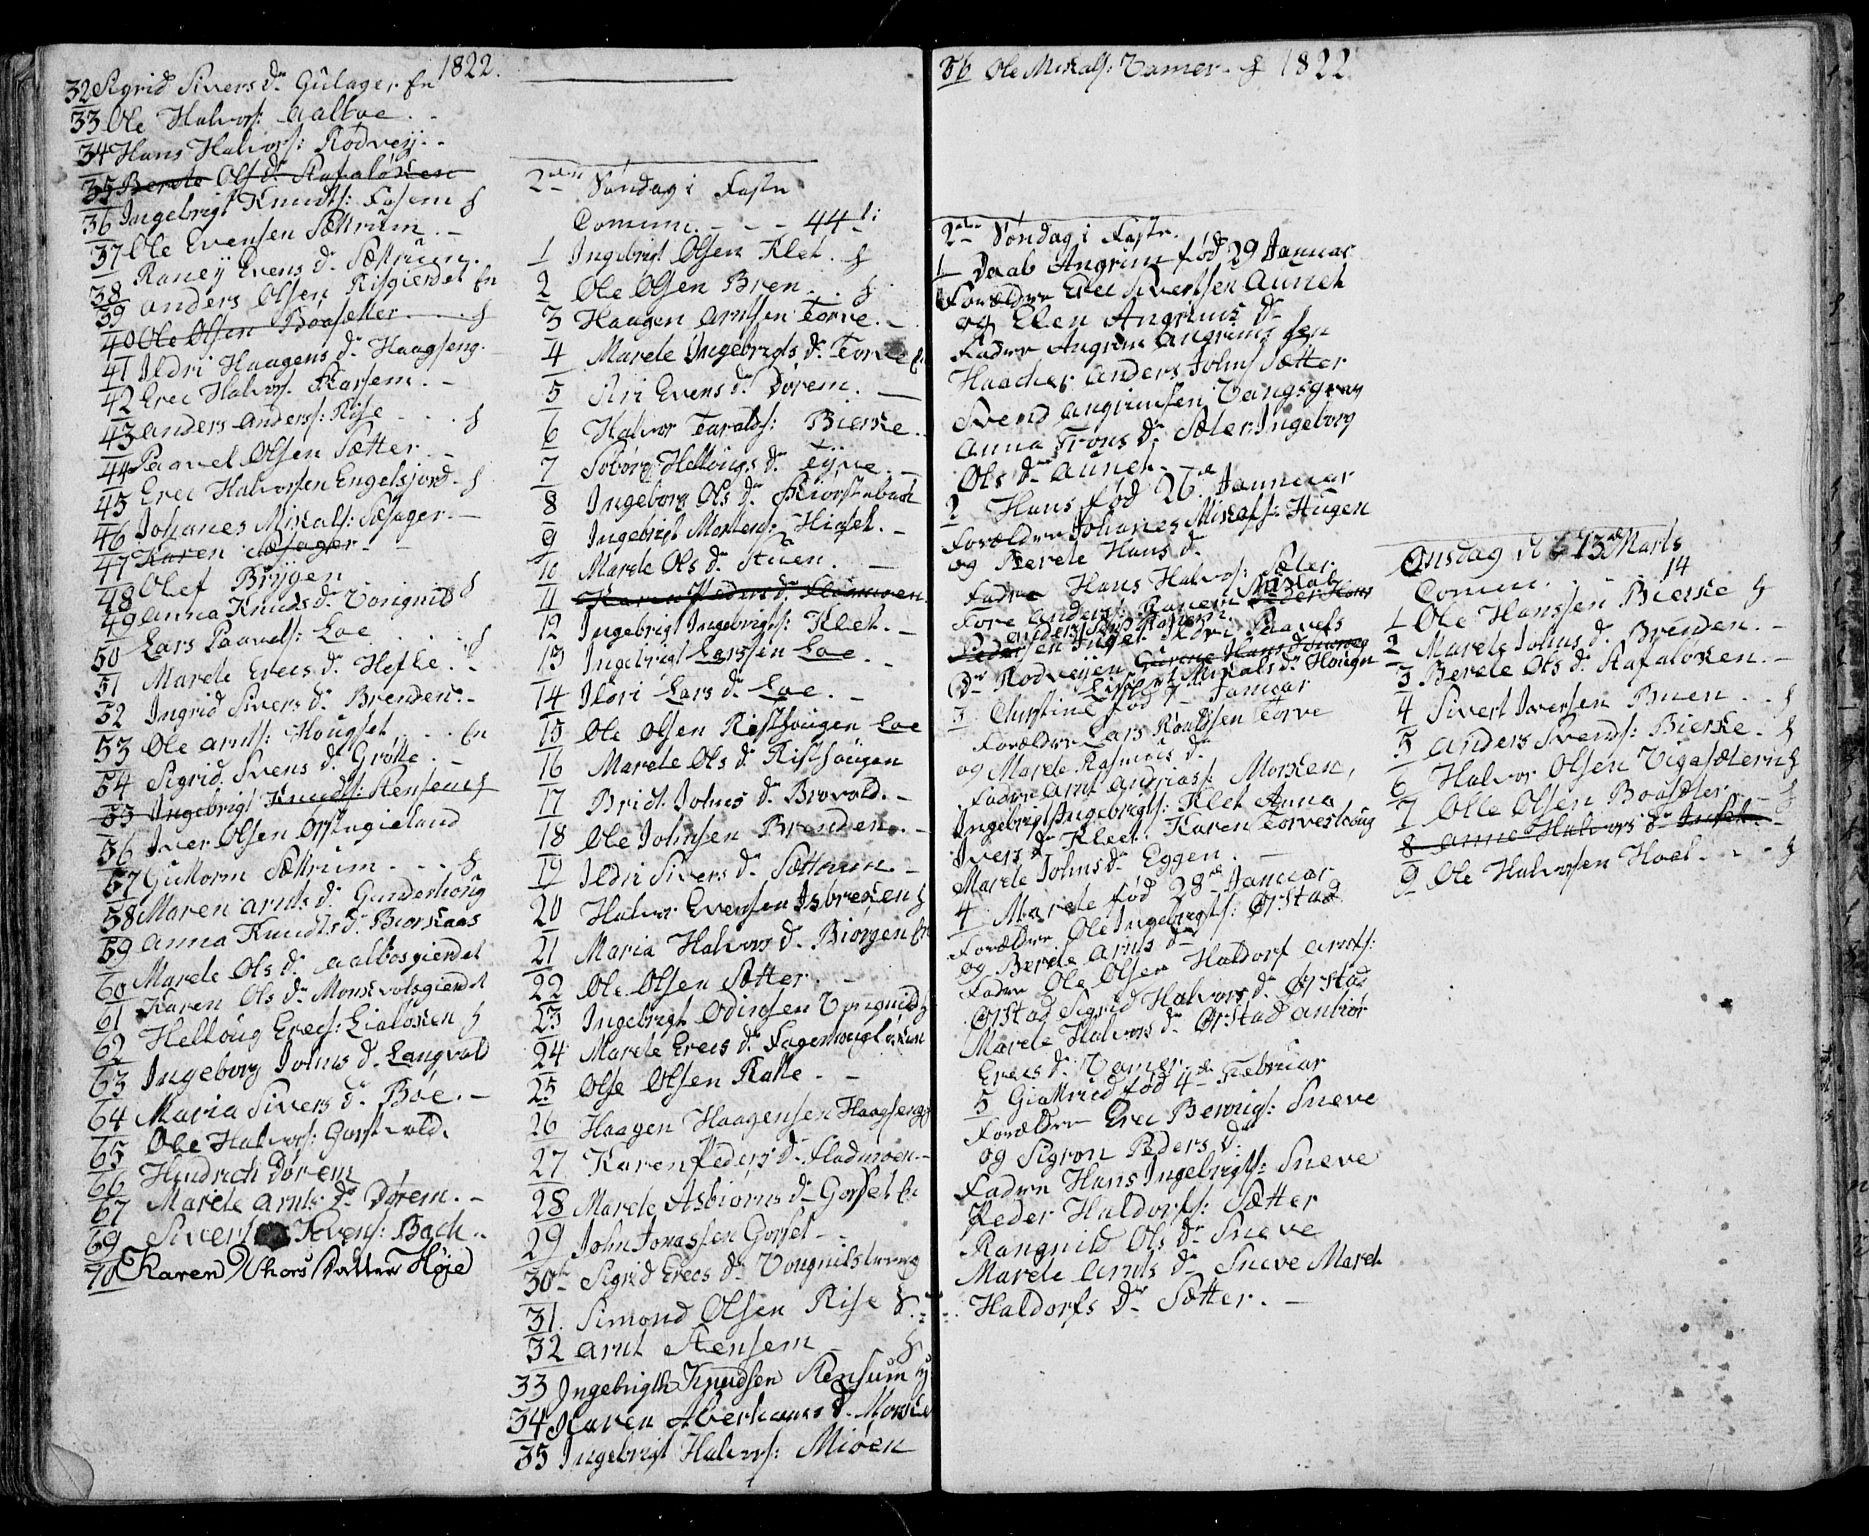 1822.
32 Sigrid Sivers dr Gulager En
33 Ole Halvors: Aalboe
34 Hans Halvors: Rodveij
35 Berete Ols dr Rafaløkken
36 Ingebrigt Knudts: Fosem
37 Ole Evensen Sættrum
38 Raneij Evens dr Sættrum
39 Anders Olsen Risgierdet En
40 Ole Olsen Boasetter
41 Ildri Haagens dr Haagseng
42 Erec Halvors: Karsem
43 Anders Anders: Rise
44 Paavel Olsen Sætter
45 Erec Halvorsen Engelsjord
46 Johanes Mikals: Sæsager
47 Karen Sæsager
48 Olef Brygen
49 Anna Knuds dr Vongnild
50 Lars Paavels: Loe
51 Marete Erecs dr Hefle
52 Ingrid Sivers dr Brenden
53 Ole Arnts: Hougset En
54 Sigrid Svens dr Grotte
55 Ingebrigt Knudts: Rensem
56 Iver Olsen
57 Guttorm Sættrum
58 Maren Arnts dr Gunderhoug
59 Anna Knudts dr Biorkaas
60 Marete Ols dr Aalbosgierdet
61 Karen Ols dr
62 Helloug Erecs: Lialøkken
63 Ingeborg Johns dr Langvold
64 Maria Sivers dr Böe
65 Ole Halvors: Gorsetvold
66 Hindrich Dörem
67 Marete Arnts dr Dörem
69 Sivert Ivers: Bach
70 Karen Thorsdatter Høie
2den Søndag i Faste
Comun. - - - 44
1 Ingebrigt Olsen Klet
2 Ole Olsen Bren
3 Haagen Arntsen Torve
4 Marete Ingebrigts dr Torve
5 Siri Evens dr Dörem
6 Halvor Taralds: Bierke
7 Hellougs dr
8 Ingeborg Ols dr
9 Ingebrigt Mortens:
10 Marete Ols dr Stuen
11 Karen Peders dr Fladmoen
12 Ingebrigt Ingebrigts: Klet
13 Ingebrigt Larssen Loe
14 Ildri Lars dr Loe
15 Ole Olsen Risthougen Loe
16 Marete Ols dr Risthougen
17 Bridt Johns dr Brovold
18 Ole Johnsen Brenden
19 Ildri Sivers dr Sættrum
20 Halvor Evensen Isbreken
21 Maria Halvors dr Biorgen En
22 Ole Olsen Sætter
23 Ingebrigt Odinsen Vongnild
24 Marete Erecs dr
25 Olse Olsen Ratte
26 Haagen Haagensen Haagseng
27 Karen Peders dr Fladmoen
28 Marete Asbiorns dr Gorset En
29 John Jonassen Gorset
30 Sigrid Erecs dr
31. Simond Olsen Rise
32 Arnt Stensem
33 Ingebrigth Knudsen Rensum
34 Karen dr
35 Ingebrigt Halvors: Mioen
36 Ole Mikals: Vamer 1822
2den Søndag i Faste
1 Daab Angrim fød 29 Januar
Forældre Erec Sivertsen Aunet
og Elen Angrims dr
Fadre Angrim Angrims sen
Haacher Anders Johns Sætter
Svend Angrimsen Vangsgrav
Anna Trons dr Sæter Ingeborg
Ols dr Aunet
2 Hans fød 26de Januar
Forældre Johanes Mikals: Hugen
og Berete Hans dr
Fadre Hans Halvors: Sæter
Tore Anders: Ranem
Ildri Paavels
dr Rodveijen
Mikals dr Hougen
3 Christine fød Januar
Forældre Lars Torve
og Marete Rasmus dr
Fadre Arnt Andrias: Morken,
Ingebrigt Ingebrigts: Klet Anna
Ivers dr Klet. Karen Torveshoug
Marete Johns dr Eggen
4 Marete fød 28de Januar
Forældre Ole Ingebrigts: Ørstad
og Berete Arnts dr
Fadre Ole Olsen Haldorf Arnts:
Ørstad Sigrid Halvors dr Ørstad
Marete Halvors dr Ørstad
Erecs dr Vamer
5 fød 4de Februar
Forældre Erec Sneve
og Sigron Peders dr:
Fadre Hans Ingebrigts: Sneve
Peder Haldorfs: Sætter
Rangnild Ols dr Sneve
Marete Arnts dr Sneve Maret
Haldorfs dr Sætter
Onsdag d 13de Marts
Comun. 14
1 Ole Hanssen Bierke
2 Marete Johns dr Brenden
3 Berete Ols dr Rafaløkken
4 Sivert Iversen Buen
5 Anders Svends: Bierke
6 Halvor Olsen
7 Olle Olsen Boasetter
8 Anne Halvors dr
9 Ole Halvorsen Hoel